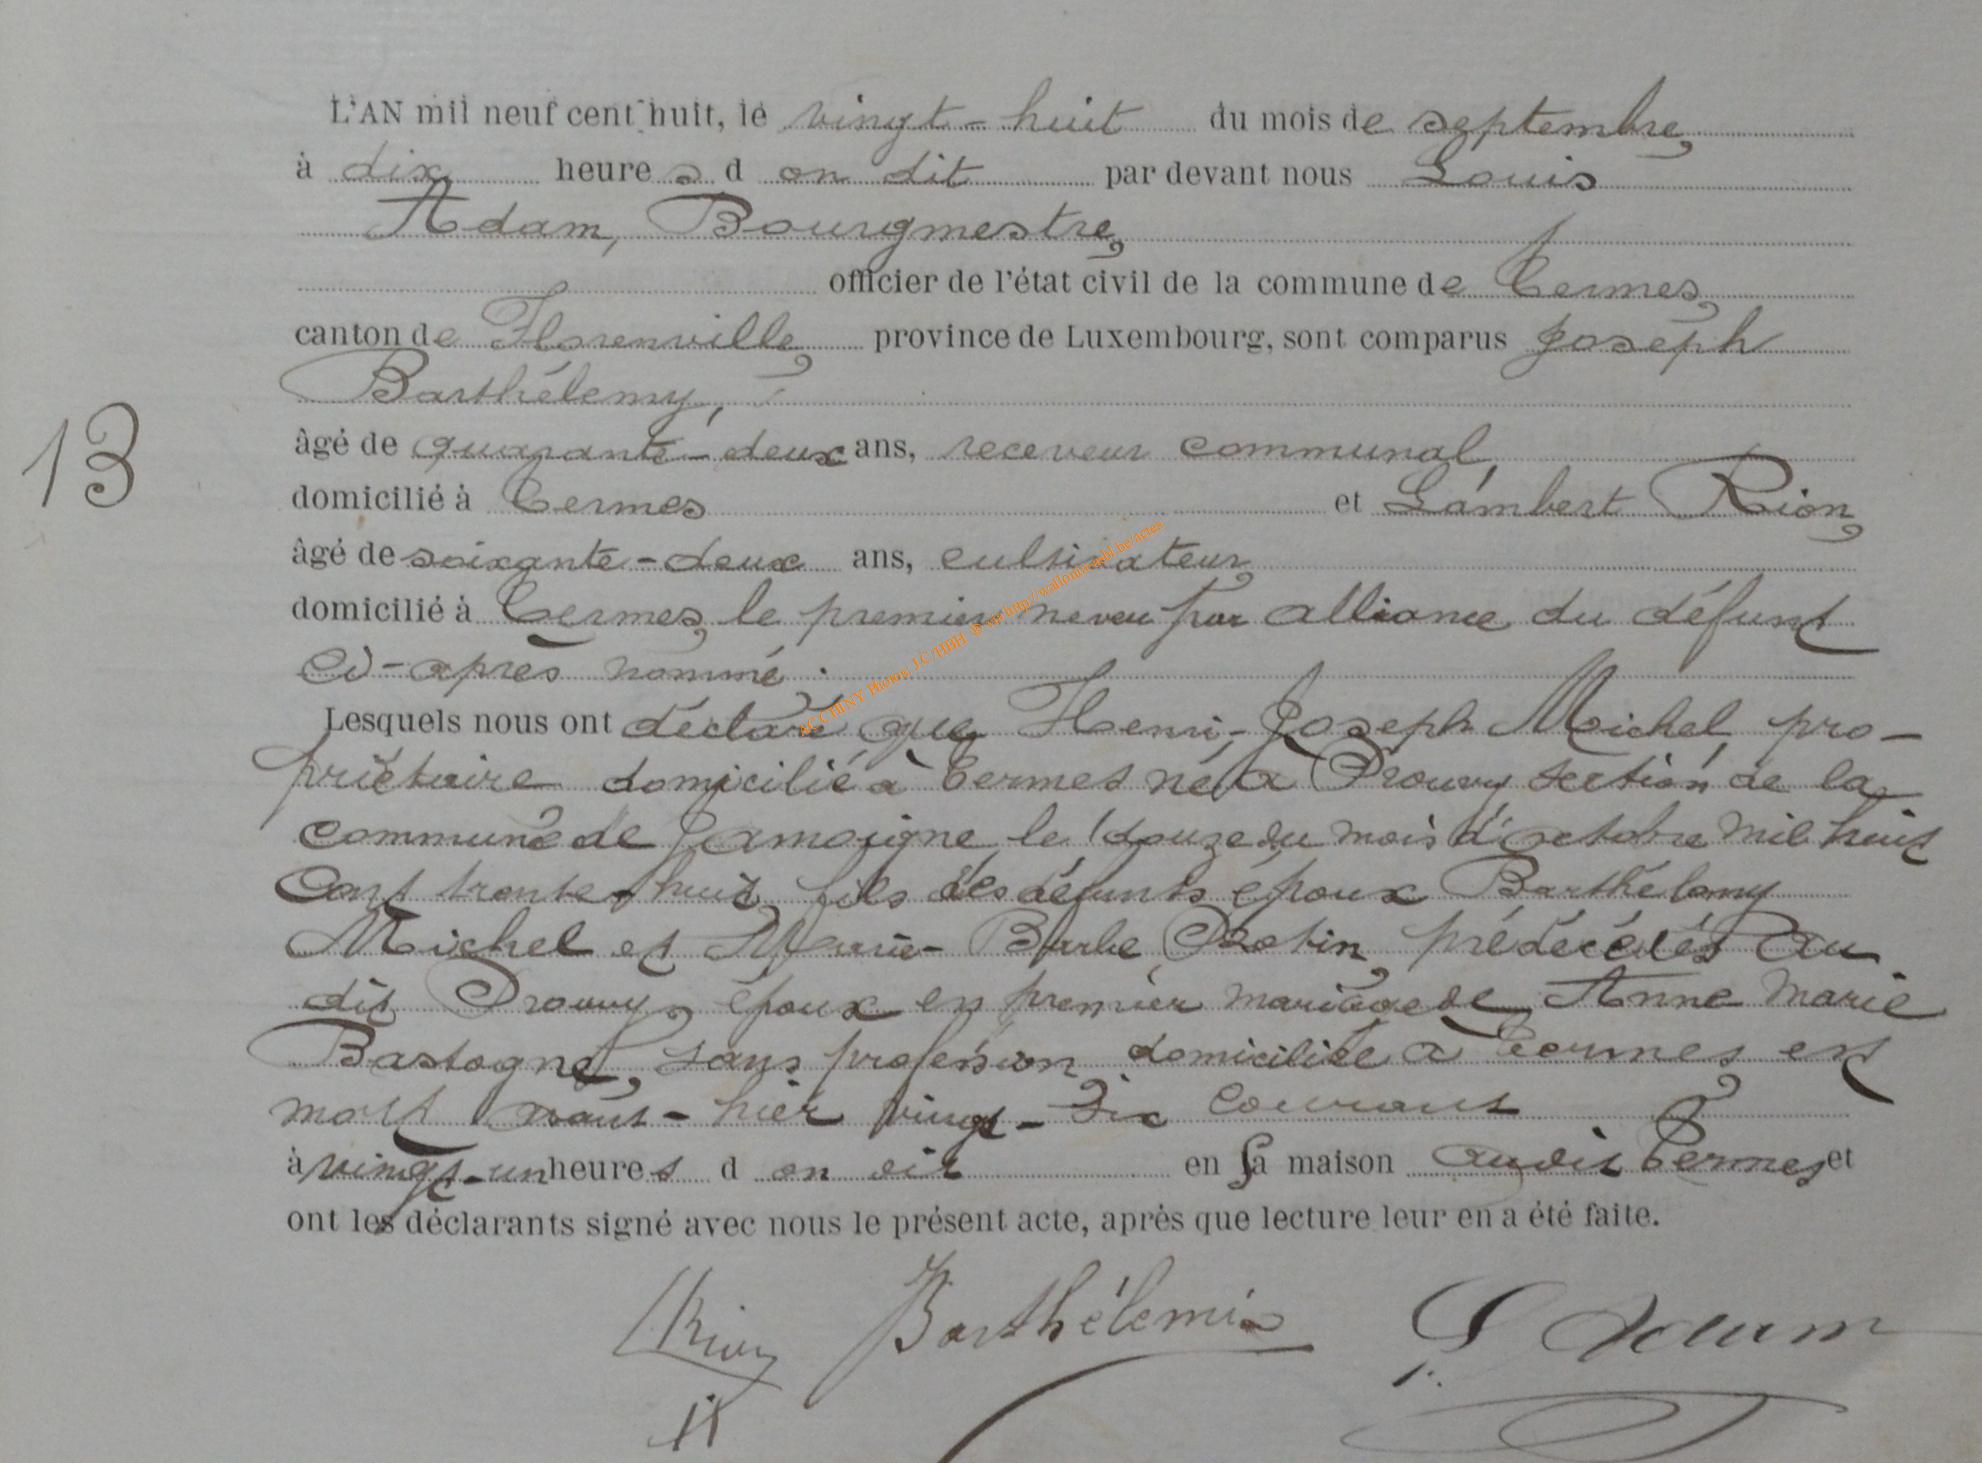 L'AN mil neuf cent huit, le vingt-huit du mois de septembre,
à dix heures d on dit par devant nous Louis
Adam, Bourgmestre,
officier de l'état civil de la commune de Termes,
canton de Florenville, province de Luxembourg, sont comparus Joseph
Barthélemy,
13
âgé de quarante-deux ans, receveur communal,
domicilié à Termes et Lambert Rion,
âgé de soixante-deux ans, cultivateur,
domicilié à Termes, le premier neveu par alliance du défunt
ci-après nommé.
ACCTHNY Photos J.C HBH @ sur http://wallonica asbl.be/actes
Lesquels nous ont déclaré que Henri-Joseph Michel, pro-
priétaire domicilié à Termes né à Prouvy section de la
commune de Jamoigne, le douze du mois d'octobre mil huit
cent trente-huit, fils des défunts époux Barthélemy
Michel et Marie-Barbe Robin, prédécédés au
dit Prouvy, époux en premier mariage de Anne Marie
Bastogne, sans profession domiciliée à Termes est
mort avant-hier vingt-six courant
à vingt-un heures d on dit en sa maison audit Termes et
ont les déclarants signé avec nous le présent acte, après que lecture leur en a été faite.
LRion Barthélemi L Adam